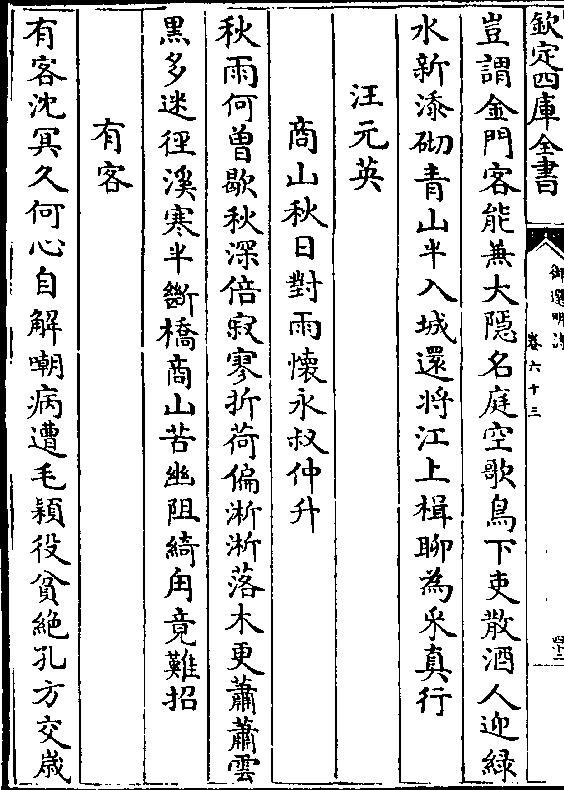 欽定四庫全書
御選明詩
卷六十三
四十二
豈謂金門客能兼大隱名庭空歌鳥下吏散酒人迎緑
水新添砌青山半入城還將江上楫聊為采真行
汪元英
商山秋日對雨懐永叔仲升
秋雨何曽歇秋深倍寂寥折荷偏淅淅落木更蕭蕭雲
黒多迷徑溪寒半斷橋商山苦幽阻綺甪竟難招
有客
有客沈冥久何心自解嘲病遭毛穎役貧絶孔方交歳